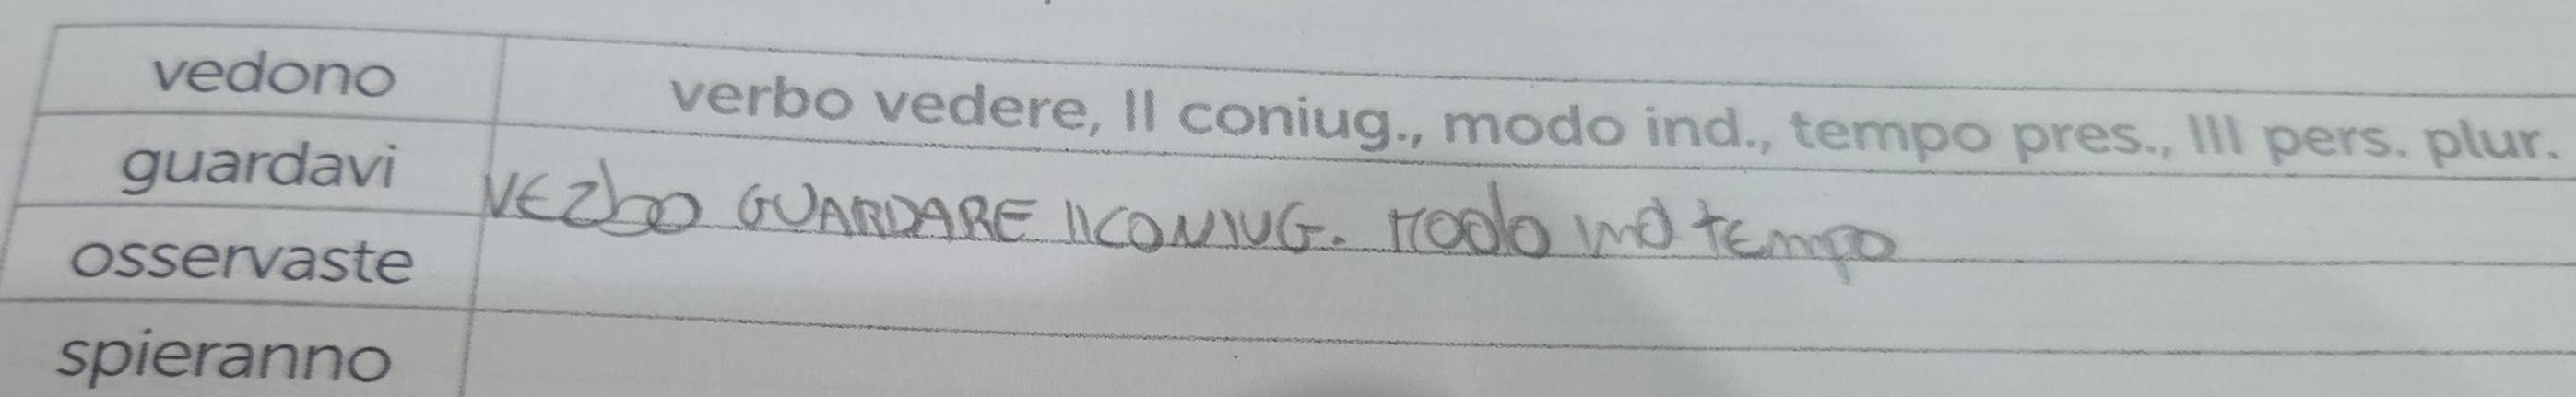 vedono verbo vedere, II coniug., modo ind., tempo pres., III pers. plur.
guardavi VERbO GUARDARE II CONIUG. MODO IND TEMPO
osservaste
spieranno